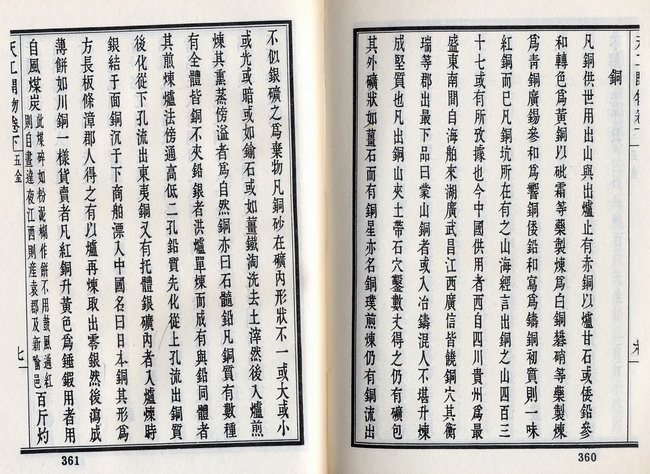 天工開物卷下
銅
凡銅供世用出山與出爐止有赤銅以爐甘石或倭鉛參
和轉色爲黃銅以砒霜等藥製煉爲白銅礬硝等藥製煉
爲青銅廣錫參和爲響銅倭鉛和寫爲鑄銅初質則一味
紅銅而已凡銅坑所在有之山海經言出銅之山四百三
十七或有所攷據也今中國供用者西自四川貴州爲最
盛東南間自海舶來湖廣武昌江西廣信皆饒銅穴其衡
瑞等郡出最下品曰蒙山銅者或入冶鑄混入不堪升煉
成堅質也凡出銅山夾土帶石穴鑿數丈得之仍有礦包
其外礦狀如薑石而有銅星亦名銅璞煎煉仍有銅流出
360
不似銀礦之爲棄物凡銅砂在礦內形狀不一或大或小
或光或暗或如鍮石或如薑鐵淘洗去土滓然後入爐煎
煉其熏蒸傍溢者爲自然銅亦曰石髓鉛凡銅質有數種
有全體皆銅不夾鉛銀者洪爐單煉而成有與鉛同體者
其煎煉爐法傍通高低二孔鉛質先化從上孔流出銅質
後化從下孔流出東夷銅又有托體銀礦內者入爐煉時
銀結于面銅沉于下商舶漂入中國名曰日本銅其形爲
方長板條漳郡人得之有以爐再煉取出零銀然後瀉成
薄餅如川銅一樣貨賣者凡紅銅升黃色爲錘鍛用者用
自風煤炭此煤碎如粉泥糊作餅不用鼓風通紅則自晝達夜江西則產袁郡及新喻邑百斤灼
天工開物卷下 五金
七
361